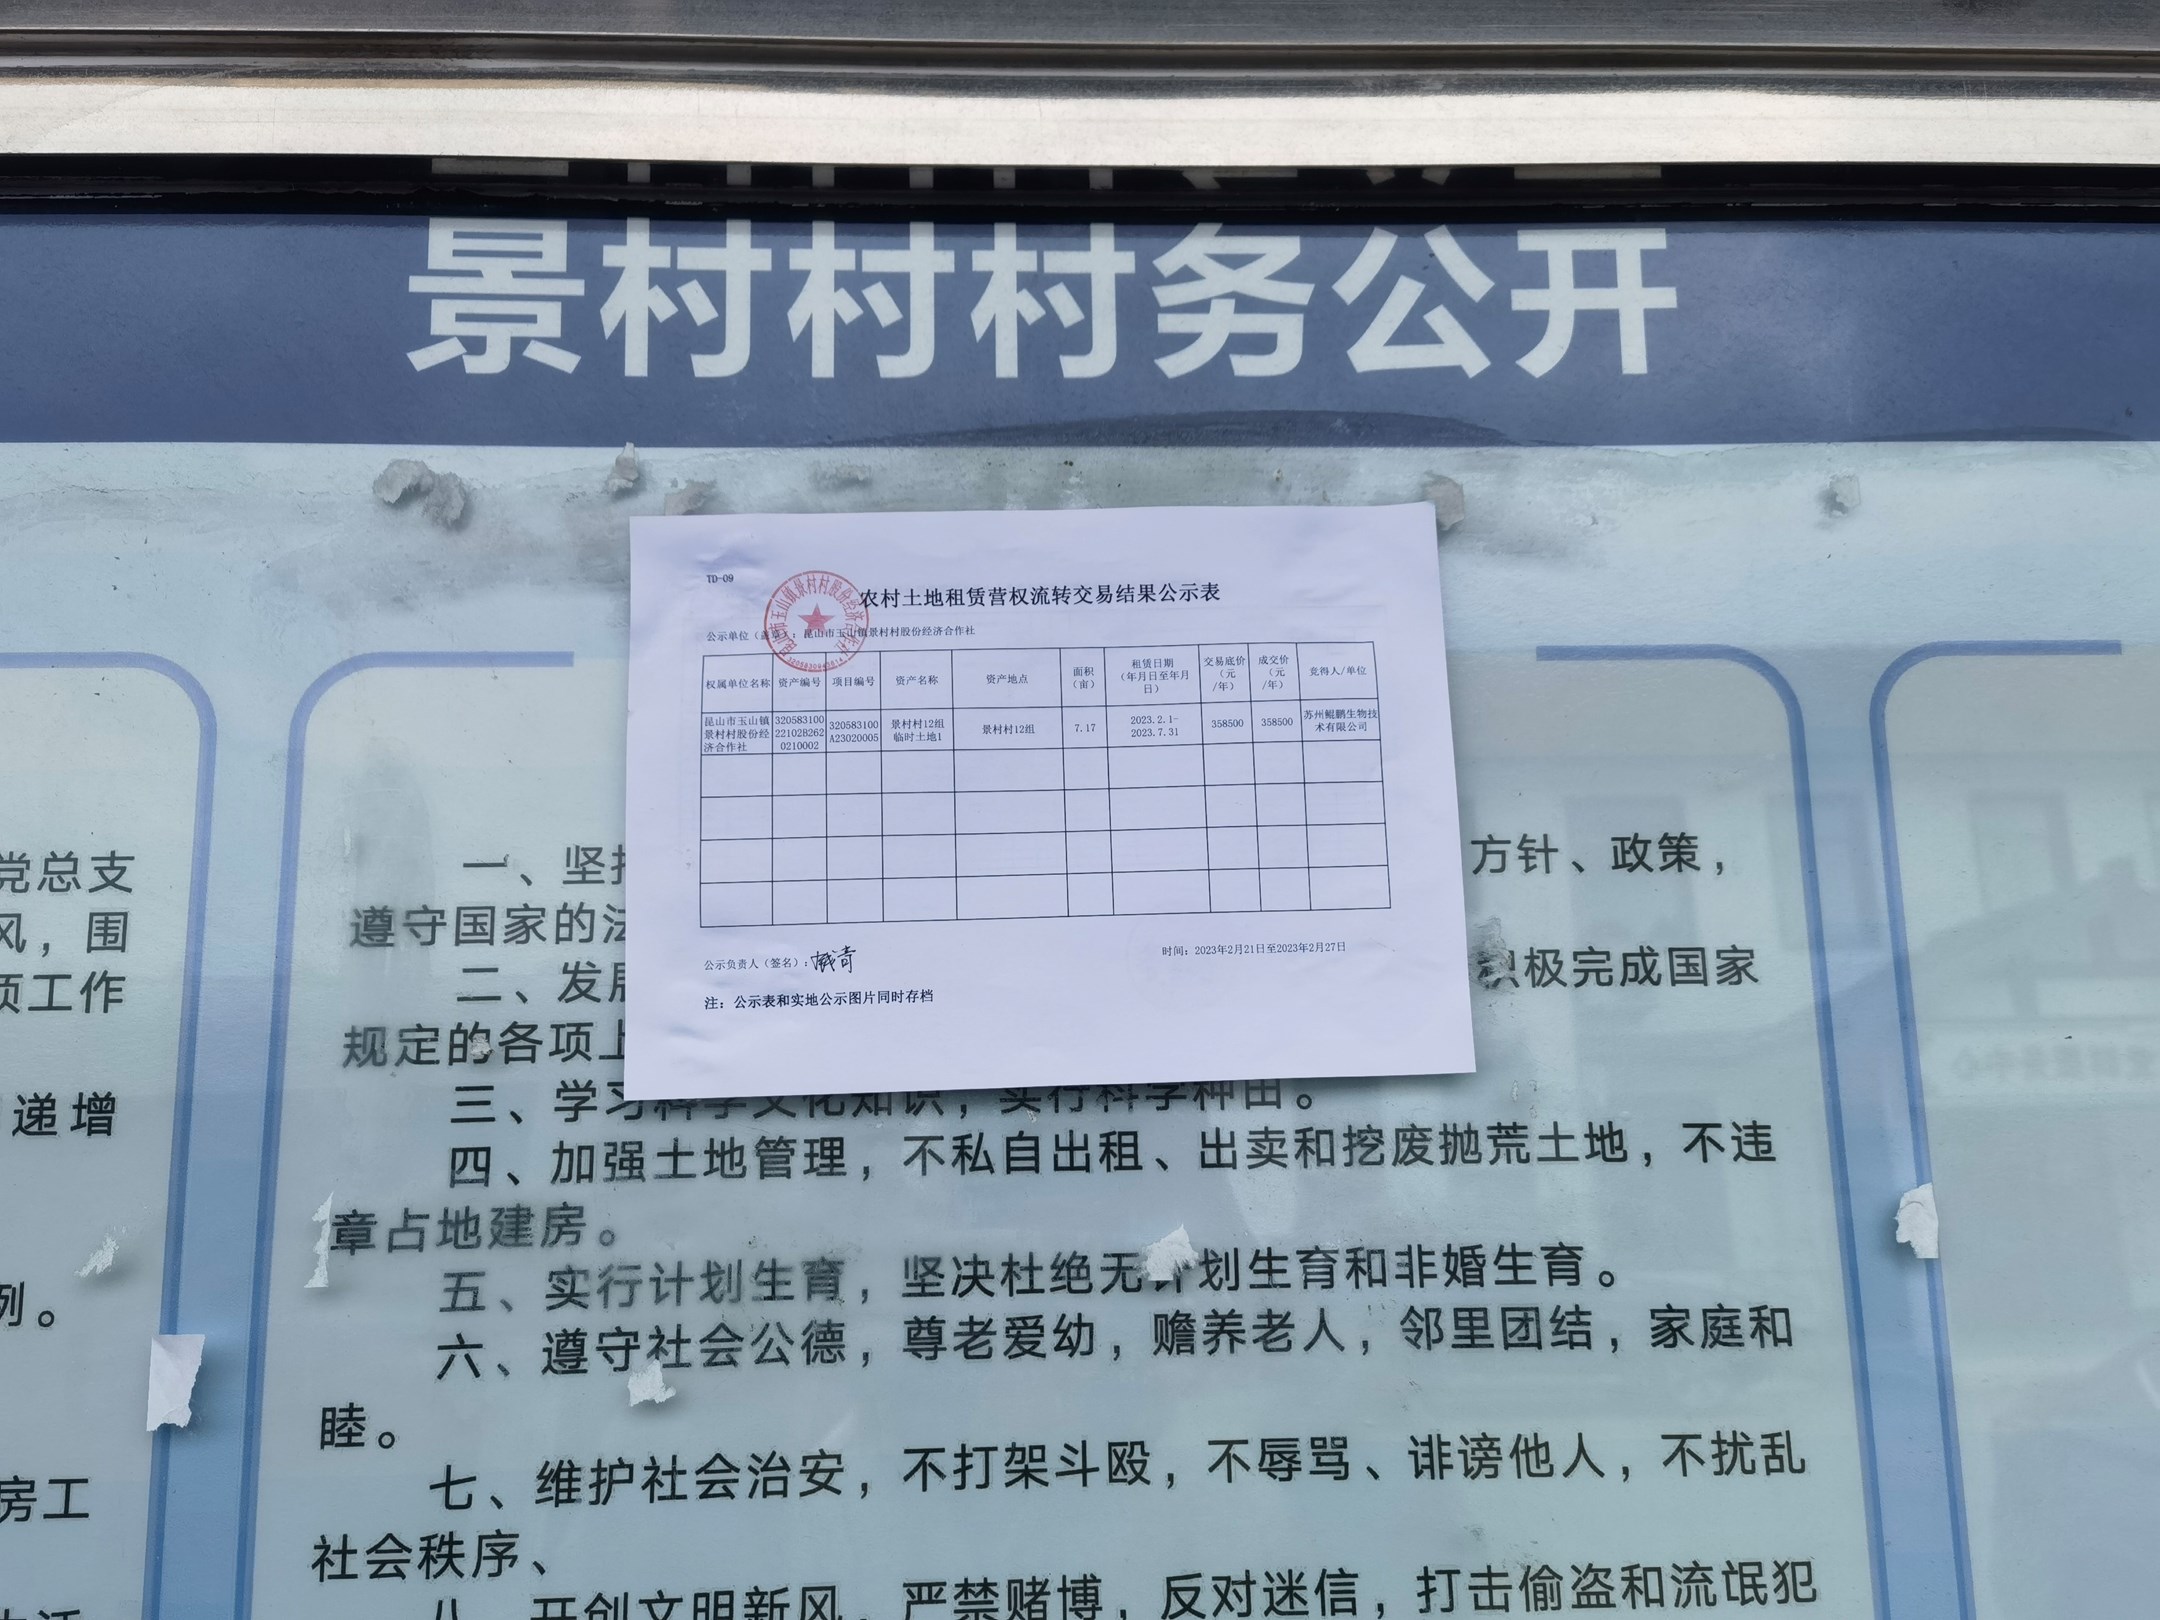 景村村村务公开
TD-09
农村土地租赁营权流转交易结果公示表
公示单位（盖章）：昆山市玉山镇景村村股份经济合作社
权属单位名称 资产编号 项目编号 资产名称 资产地点 面积（亩） 租赁日期（年月日至年月日） 交易底价（元/年） 成交价（元/年） 竞得人/单位
昆山市玉山镇景村村股份经济合作社 3205831002210282620210002 320583100A23020005 景村村12组临时土地1 景村村12组 7.17 2023.2.1-2023.7.31 358500 358500 苏州鲲鹏生物技术有限公司
公示负责人（签名）：
时间：2023年2月21日至2023年2月27日
注：公示表和实地公示图片同时存档
党总支
风，围
项工作
递增
例。
房工
一、坚
方针、政策，
遵守国家的法
二、发展
积极完成国家
规定的各项上
三、学习科学文化知识，实行科学种田。
四、加强土地管理，不私自出租、出卖和挖废抛荒土地，不违
章占地建房。
五、实行计划生育，坚决杜绝无计划生育和非婚生育。
六、遵守社会公德，尊老爱幼，赡养老人，邻里团结，家庭和
睦。
七、维护社会治安，不打架斗殴，不辱骂、诽谤他人，不扰乱
社会秩序、
八、开创文明新风，严禁赌博，反对迷信，打击偷盗和流氓犯